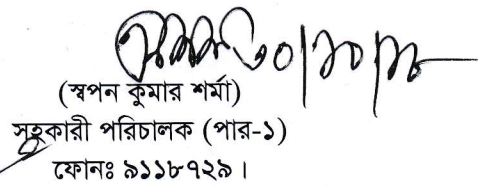 ৩০/১০/১৮
(স্বপন কুমার শর্মা)
সহকারী পরিচালক (পার-১)
ফোনঃ ৯১১৮৭২৯।